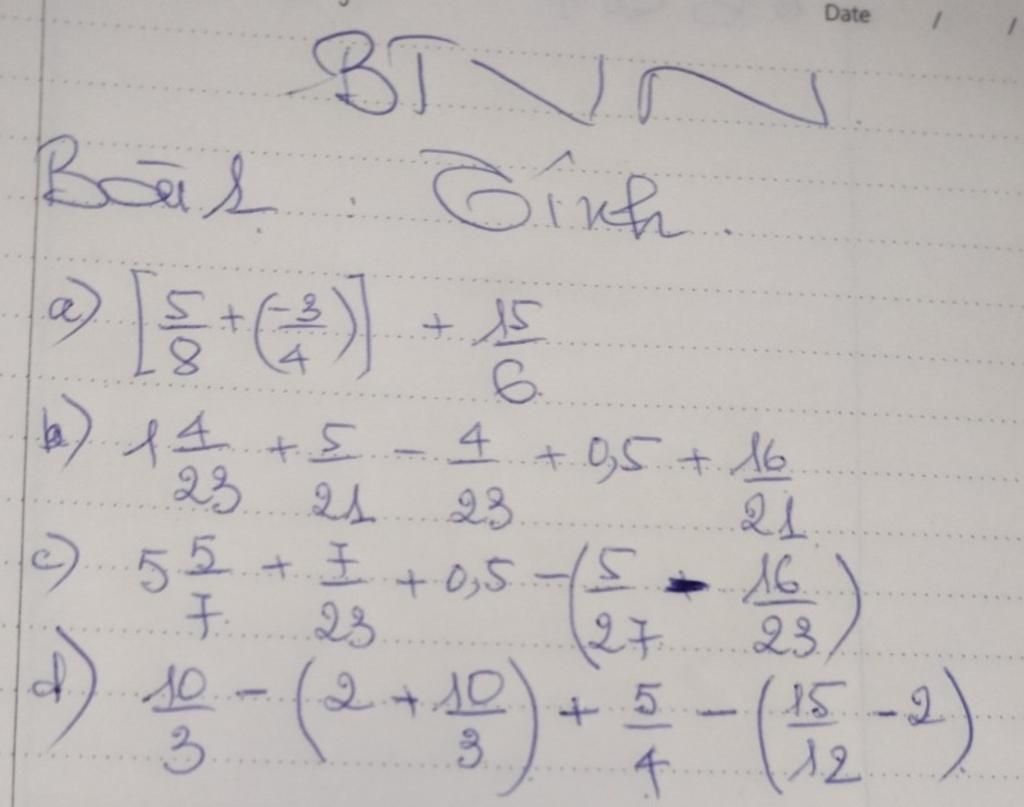 Date / /
BTVN
Bài 1 : Tính.
a) [5/8 + (-3/4)] + 15/6
b) 1 4/23 + 5/21 - 4/23 + 0,5 + 16/21
c) 5 5/7 + 7/23 + 0,5 - (5/27 - 16/23)
d) 10/3 - (2 + 10/3) + 5/4 - (15/12 - 2)